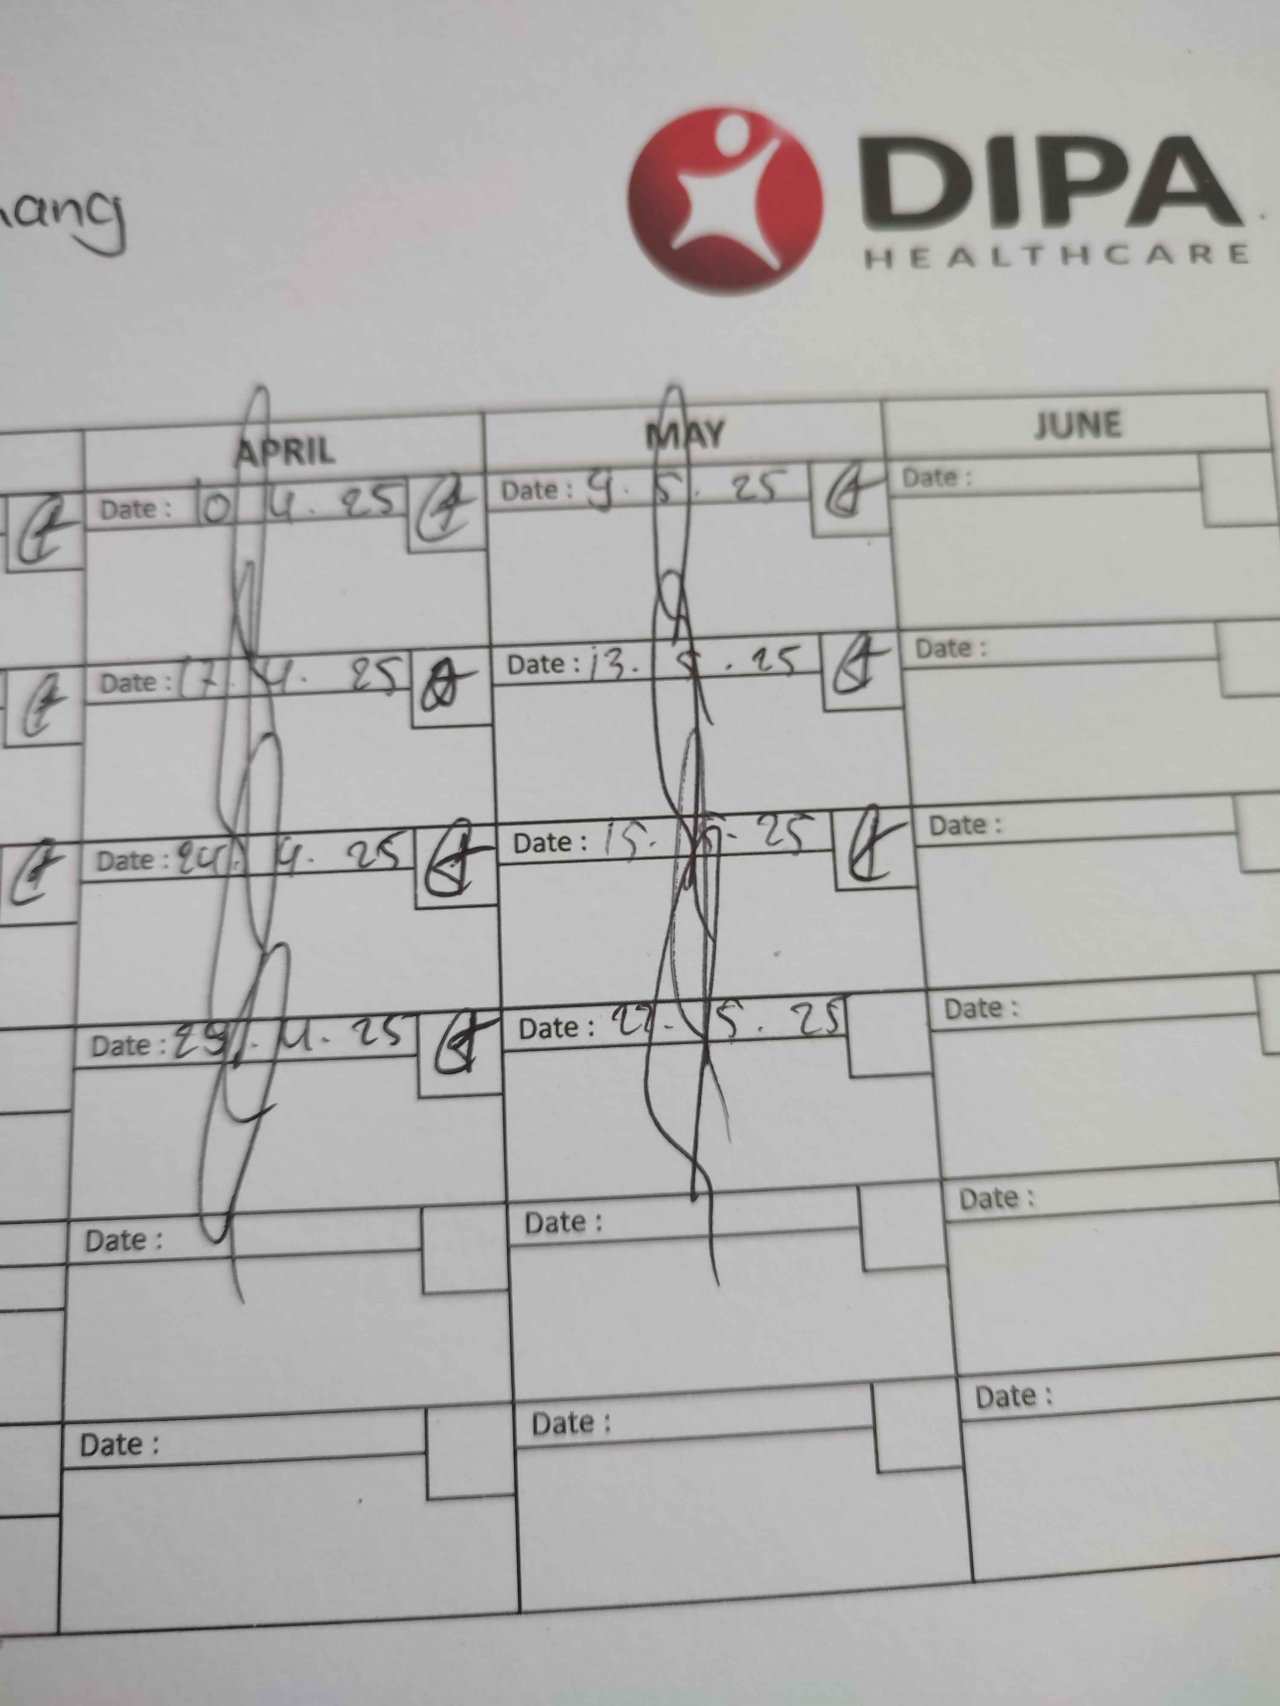 DIPA
HEALTHCARE
APRIL MAY JUNE
Date : 10 4. 25 Date : 9. 5. 25 Date :
Date : 17. 4. 25 Date : 13. 5. 25 Date :
Date : 24. 4. 25 Date : 15. 5. 25 Date :
Date : 29. 4. 25 Date : 22. 5. 25 Date :
Date : Date : Date :
Date : Date : Date :